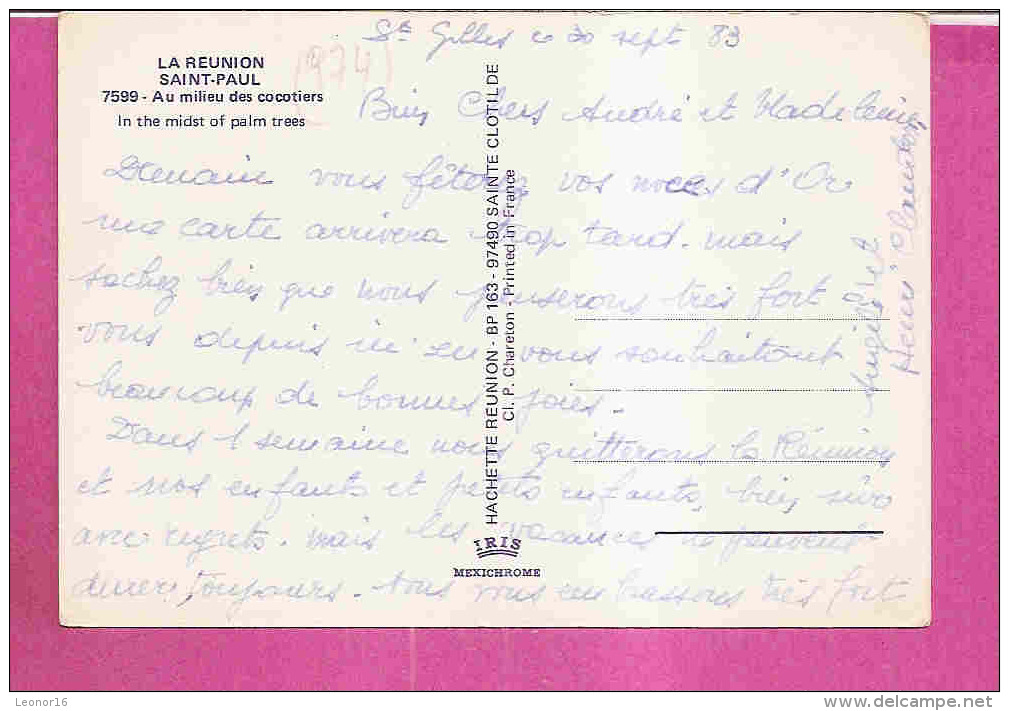 LA REUNION
SAINT-PAUL
7599 - Au milieu des cocotiers
In the midst of palm trees
(974)
St Gilles ce 30 sept 83
Bien Chers André et Madeleine
Demain vous fêterez vos noces d'Or
ma carte arrivera trop tard. mais
sachez bien que nous penserons très fort à
vous depuis ici en vous souhaitant
beaucoup de bonnes joies.
Dans 1 semaine nous quitterons la Réunion
et nos enfants et petits enfants, bien sûr
avec regrets. mais les vacances ne peuvent
durer toujours. tous vous embrassons très fort
Henri
HACHETTE REUNION - BP 163 - 97490 SAINTE CLOTILDE
Cl. P. Chareton - Printed in France
IRIS
MEXICHROME
Leonor16
www.delcampe.net